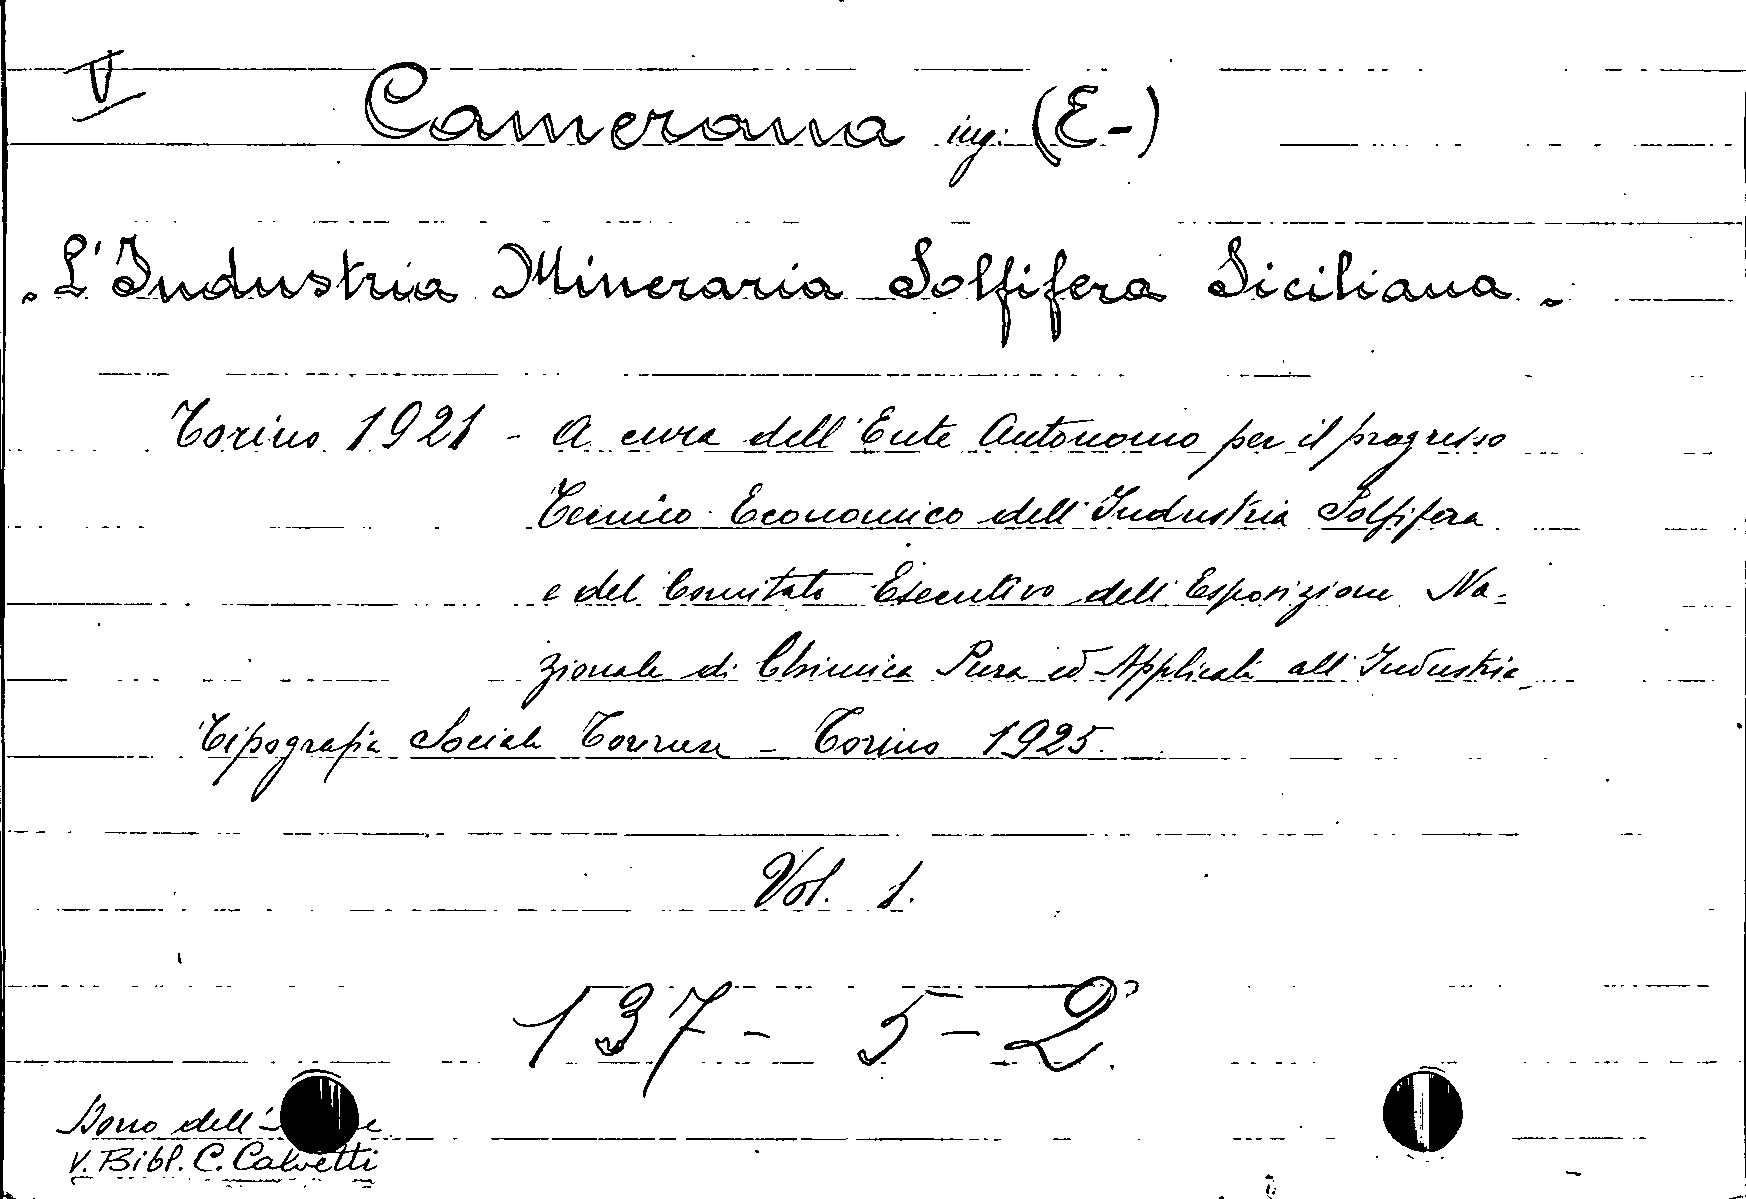 V
Camerana ing: (E-)
"L'Industria Mineraria Solfifera Siciliana"
Torino 1921 - A cura dell'Ente Autonomo per il progresso
Tecnico-Economico dell'Industria Solfifera
e del Comitato Esecutivo dell'Esposizione Na-
zionale di Chimica Pura ed Applicata all'Industria
Tipografia Sociale Torinese - Torino 1925.
Vol. 1.
137 - 5 - 2
Dono dell'
V. Bibl. C. Calvetti